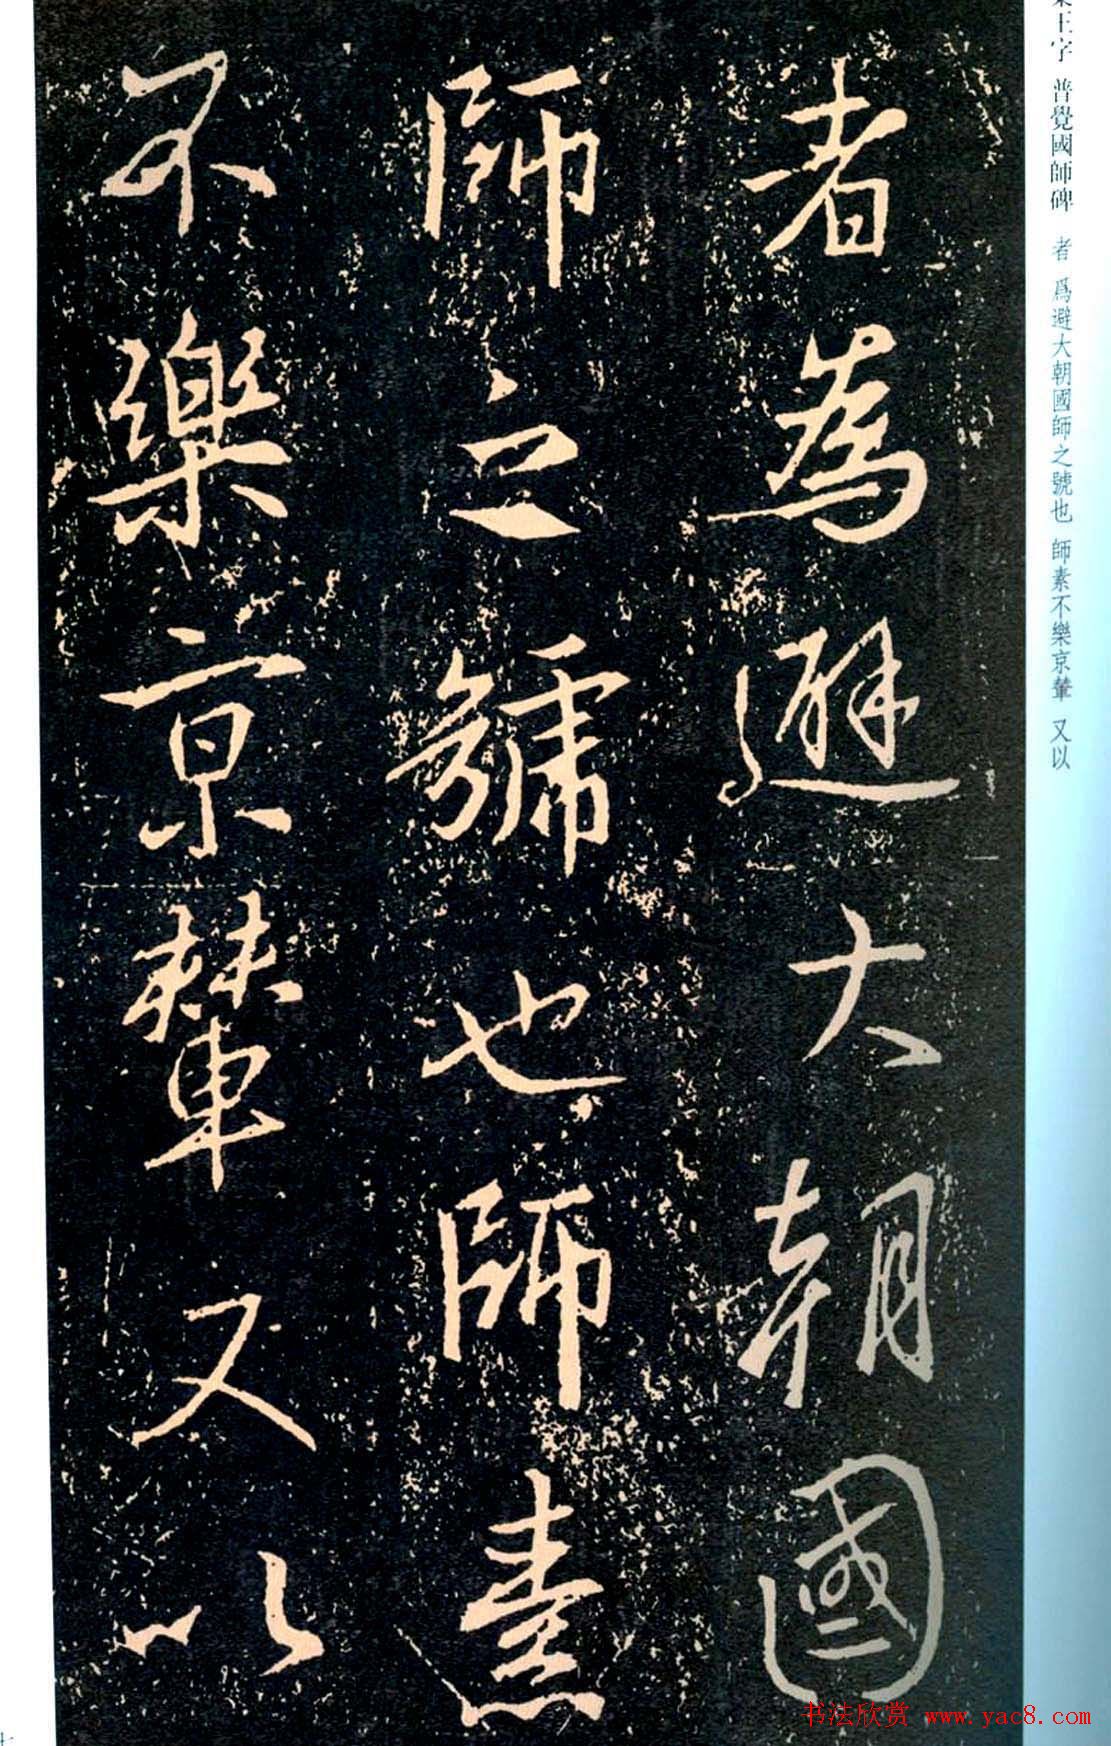 者為避大朝國
師之號也師素
不樂京輦又以
王字 普覺國師碑 者 爲避大朝國師之號也 師素不樂京輦 又以
书法欣赏 www.yac8.com
七